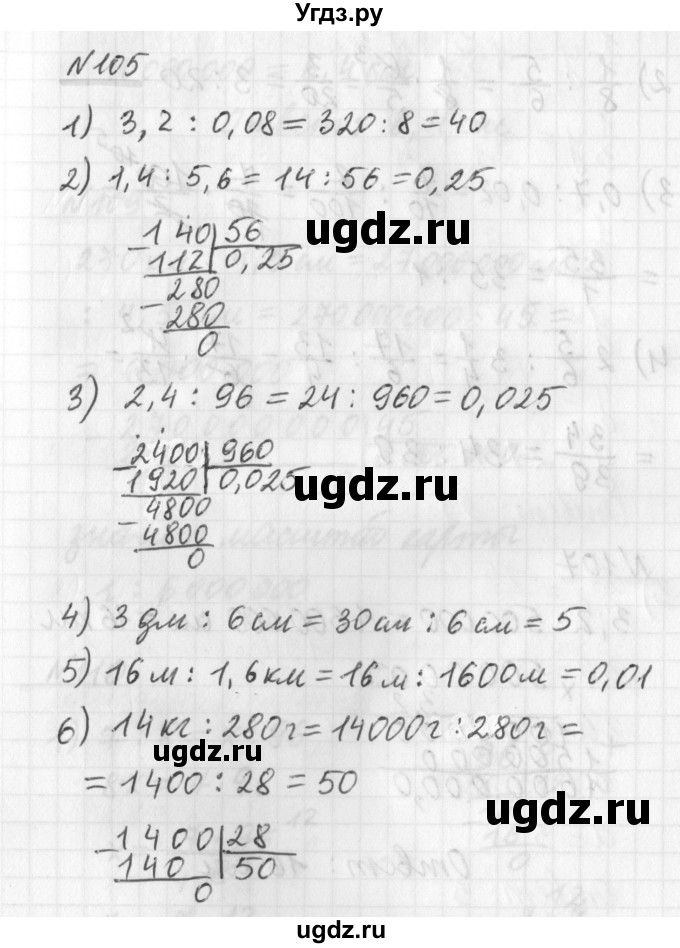 Угдз.ру
№105
1) 3,2 : 0,08 = 320 : 8 = 40
2) 1,4 : 5,6 = 14 : 56 = 0,25
- 140 56
112 0,25
- 280
280
0
ugdz.ru
3) 2,4 : 96 = 24 : 960 = 0,025
- 2400 960
1920 0,025
- 4800
4800
0
ugdz.ru
4) 3 дм : 6 см = 30 см : 6 см = 5
5) 16 м : 1,6 км = 16 м : 1600 м = 0,01
6) 14 кг : 280 г = 14000 г : 280 г =
ugdz.ru
= 1400 : 28 = 50
ugdz.ru
- 1400 28
140 50
0
ugdz.ru